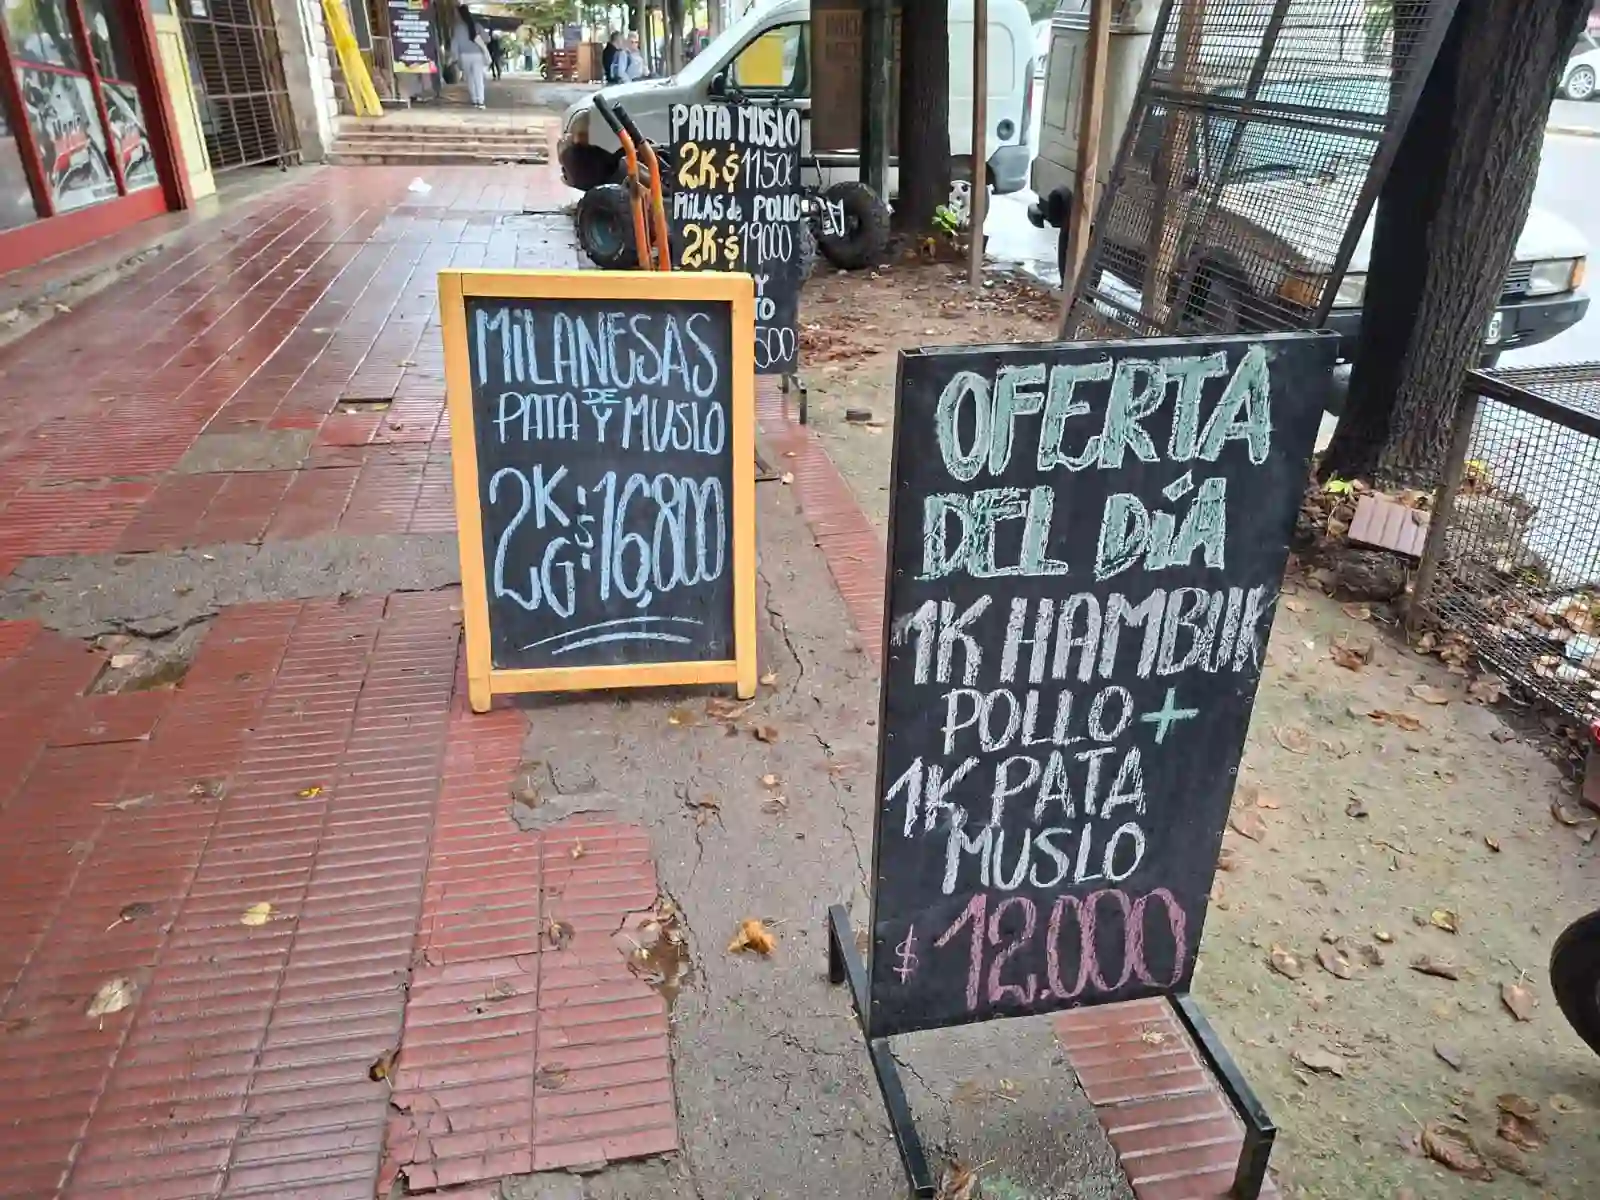 PATA MUSLO
2K $11500
MILAS de POLLO
2K $19.000
Y
TO
500
MILANESAS
DE
PATA Y MUSLO
2KG $16,800
OFERTA
DEL DÍA
1K HAMBUR
POLLO +
1K PATA
MUSLO
$12.000